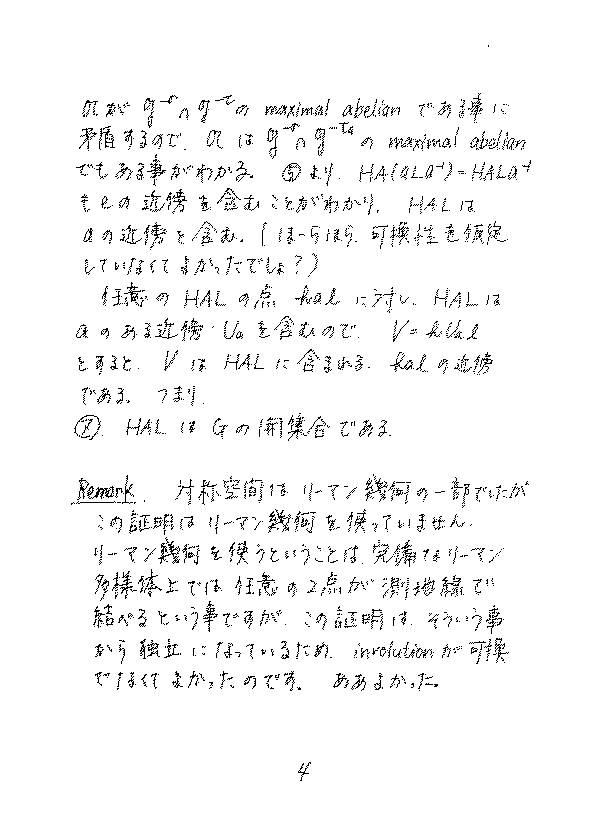 𝔞 が 𝔤^{-σ}∩𝔤^{-τ} の maximal abelian である事に
矛盾するので、𝔞 は 𝔤^{-σ}∩𝔤^{-τ_a} の maximal abelian
でもある事がわかる。 ⑤より、HA(aLa^{-1})=HALa^{-1}
もeの近傍を含むことがわかり、 HALは
aの近傍を含む。(ほーらほら、可換性を仮定
していなくてよかったでしょ?)
任意の HAL の点 hal に対し、HALは
a のある近傍 Ua を含むので、 V=hUal
とすると、 V は HAL に含まれる、halの近傍
である。 つまり、
⑦. HALは G の開集合である.
Remark. 対称空間は リーマン幾何の一部でしたが
この証明はリーマン幾何を使っていません.
リーマン幾何を使うということは、完備なリーマン
多様体上では任意の2点が測地線で
結べるという事ですが、この証明は、そういう事
から独立になっているため、involutionが可換
でなくてよかったのです。 ああよかった。
4